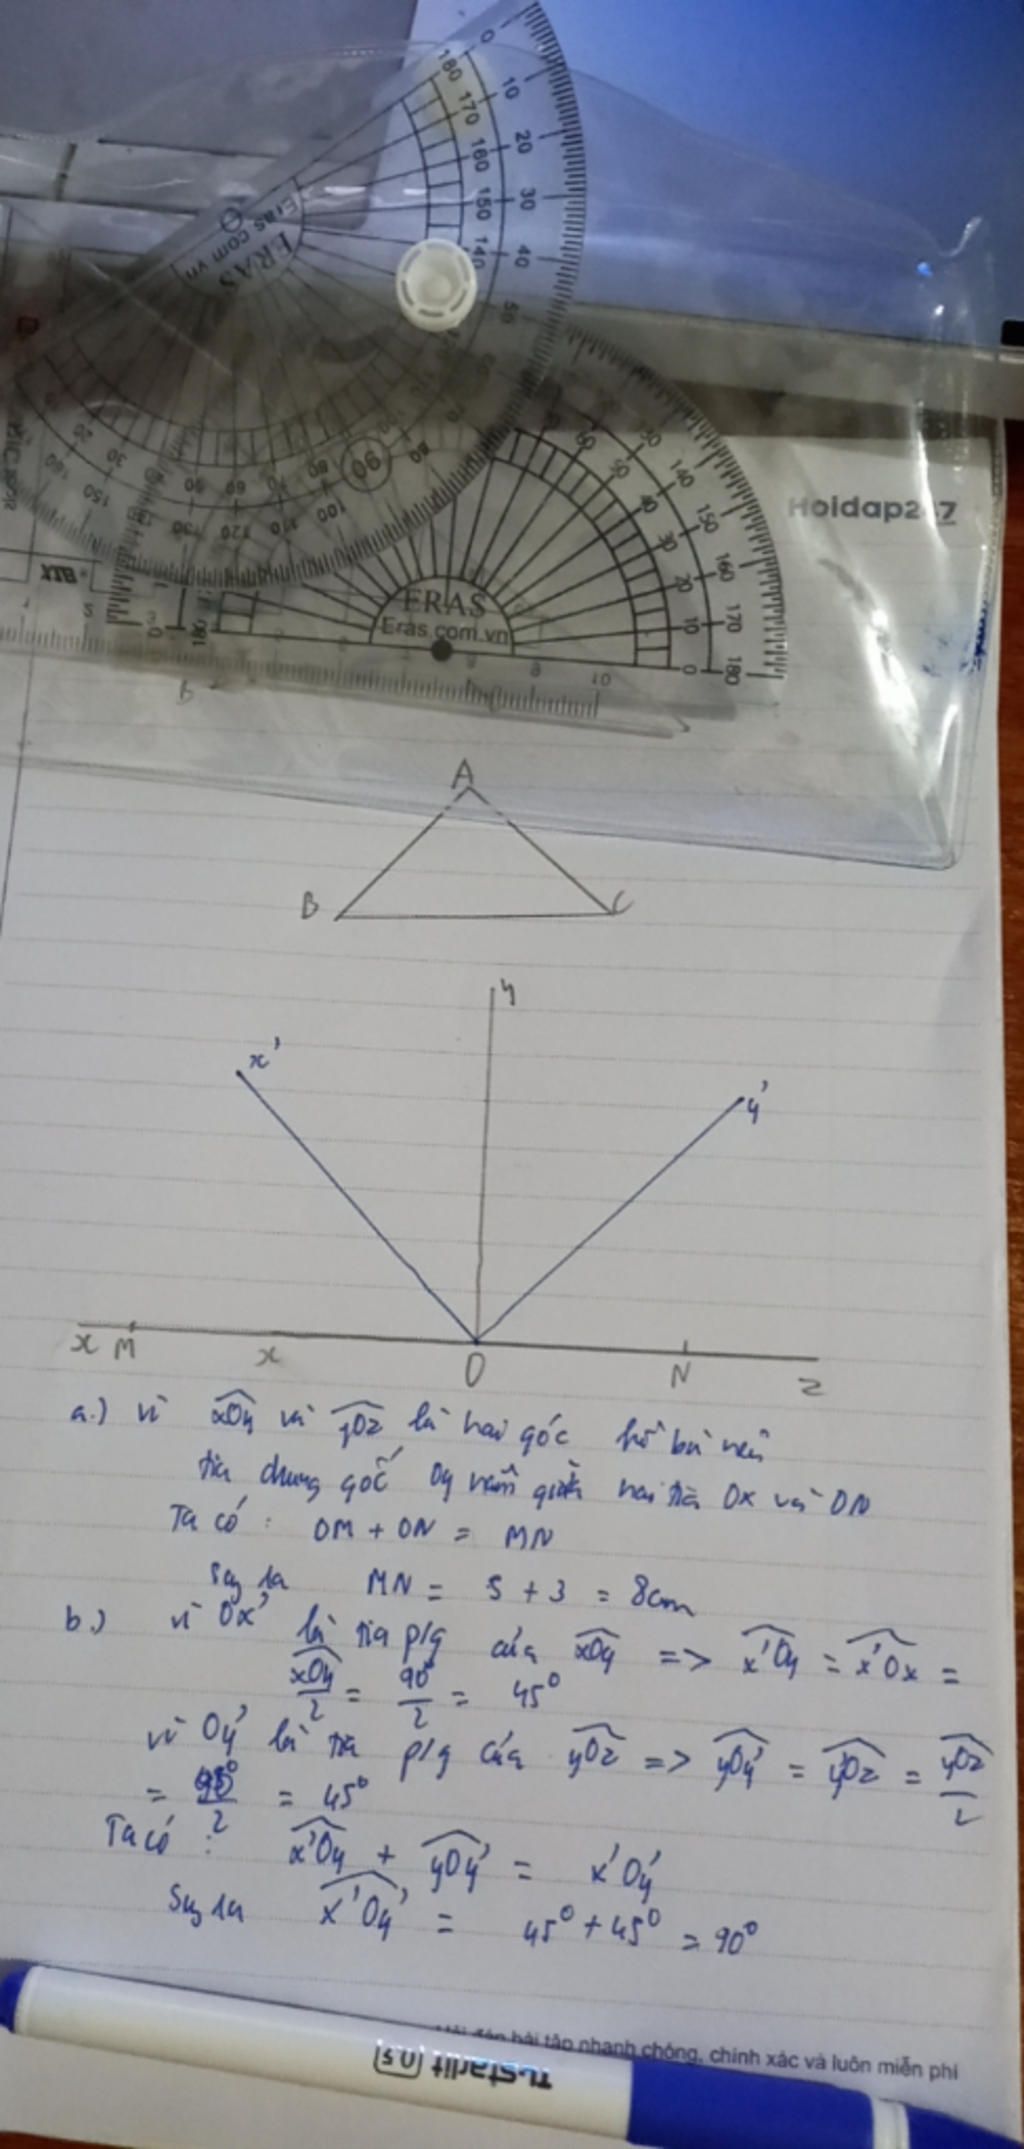 0 10 20 30 40 50
180 170 160 150 140
Eras.com.vn
ERAS
90
Hoidap247
140 150 160 170 180
50 40 30 20 10 0
BTX
ERAS
Eras.com.vn
8 10
B
A
B C
y
x' y'
x M x O N z
a.) vì xOy và yOz là hai góc kề bù nên
tia chung gốc Oy nằm giữa hai tia Ox và ON
Ta có : OM + ON = MN
Suy ra MN = 5 + 3 = 8cm
b.) vì Ox' là tia p/g của xOy => x'Oy = x'Ox =
xOy/2 = 90°/2 = 45°
vì Oy' là tia p/g của yOz => yOy' = y'Oz = yOz/2
= 90°/2 = 45°
Ta có : x'Oy + yOy' = x'Oy'
Suy ra x'Oy' = 45° + 45° = 90°
bài tập nhanh chóng, chính xác và luôn miễn phí
TL-Starlit 0.5